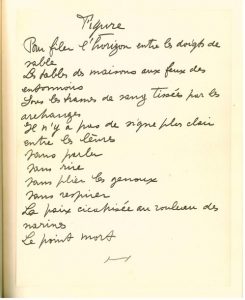 Figure
Pour filer l'horizon entre les doigts de
sable
Les tables des maisons aux feux des
entonnoirs
Sous les trames de sang tissées par les
archanges
Il n'y a pas de signe plus clair
entre les lèvres
Sans parler
Sans rire
Sans plier les genoux
Sans respirer
La paix au rouleau des
narines
Le point mort